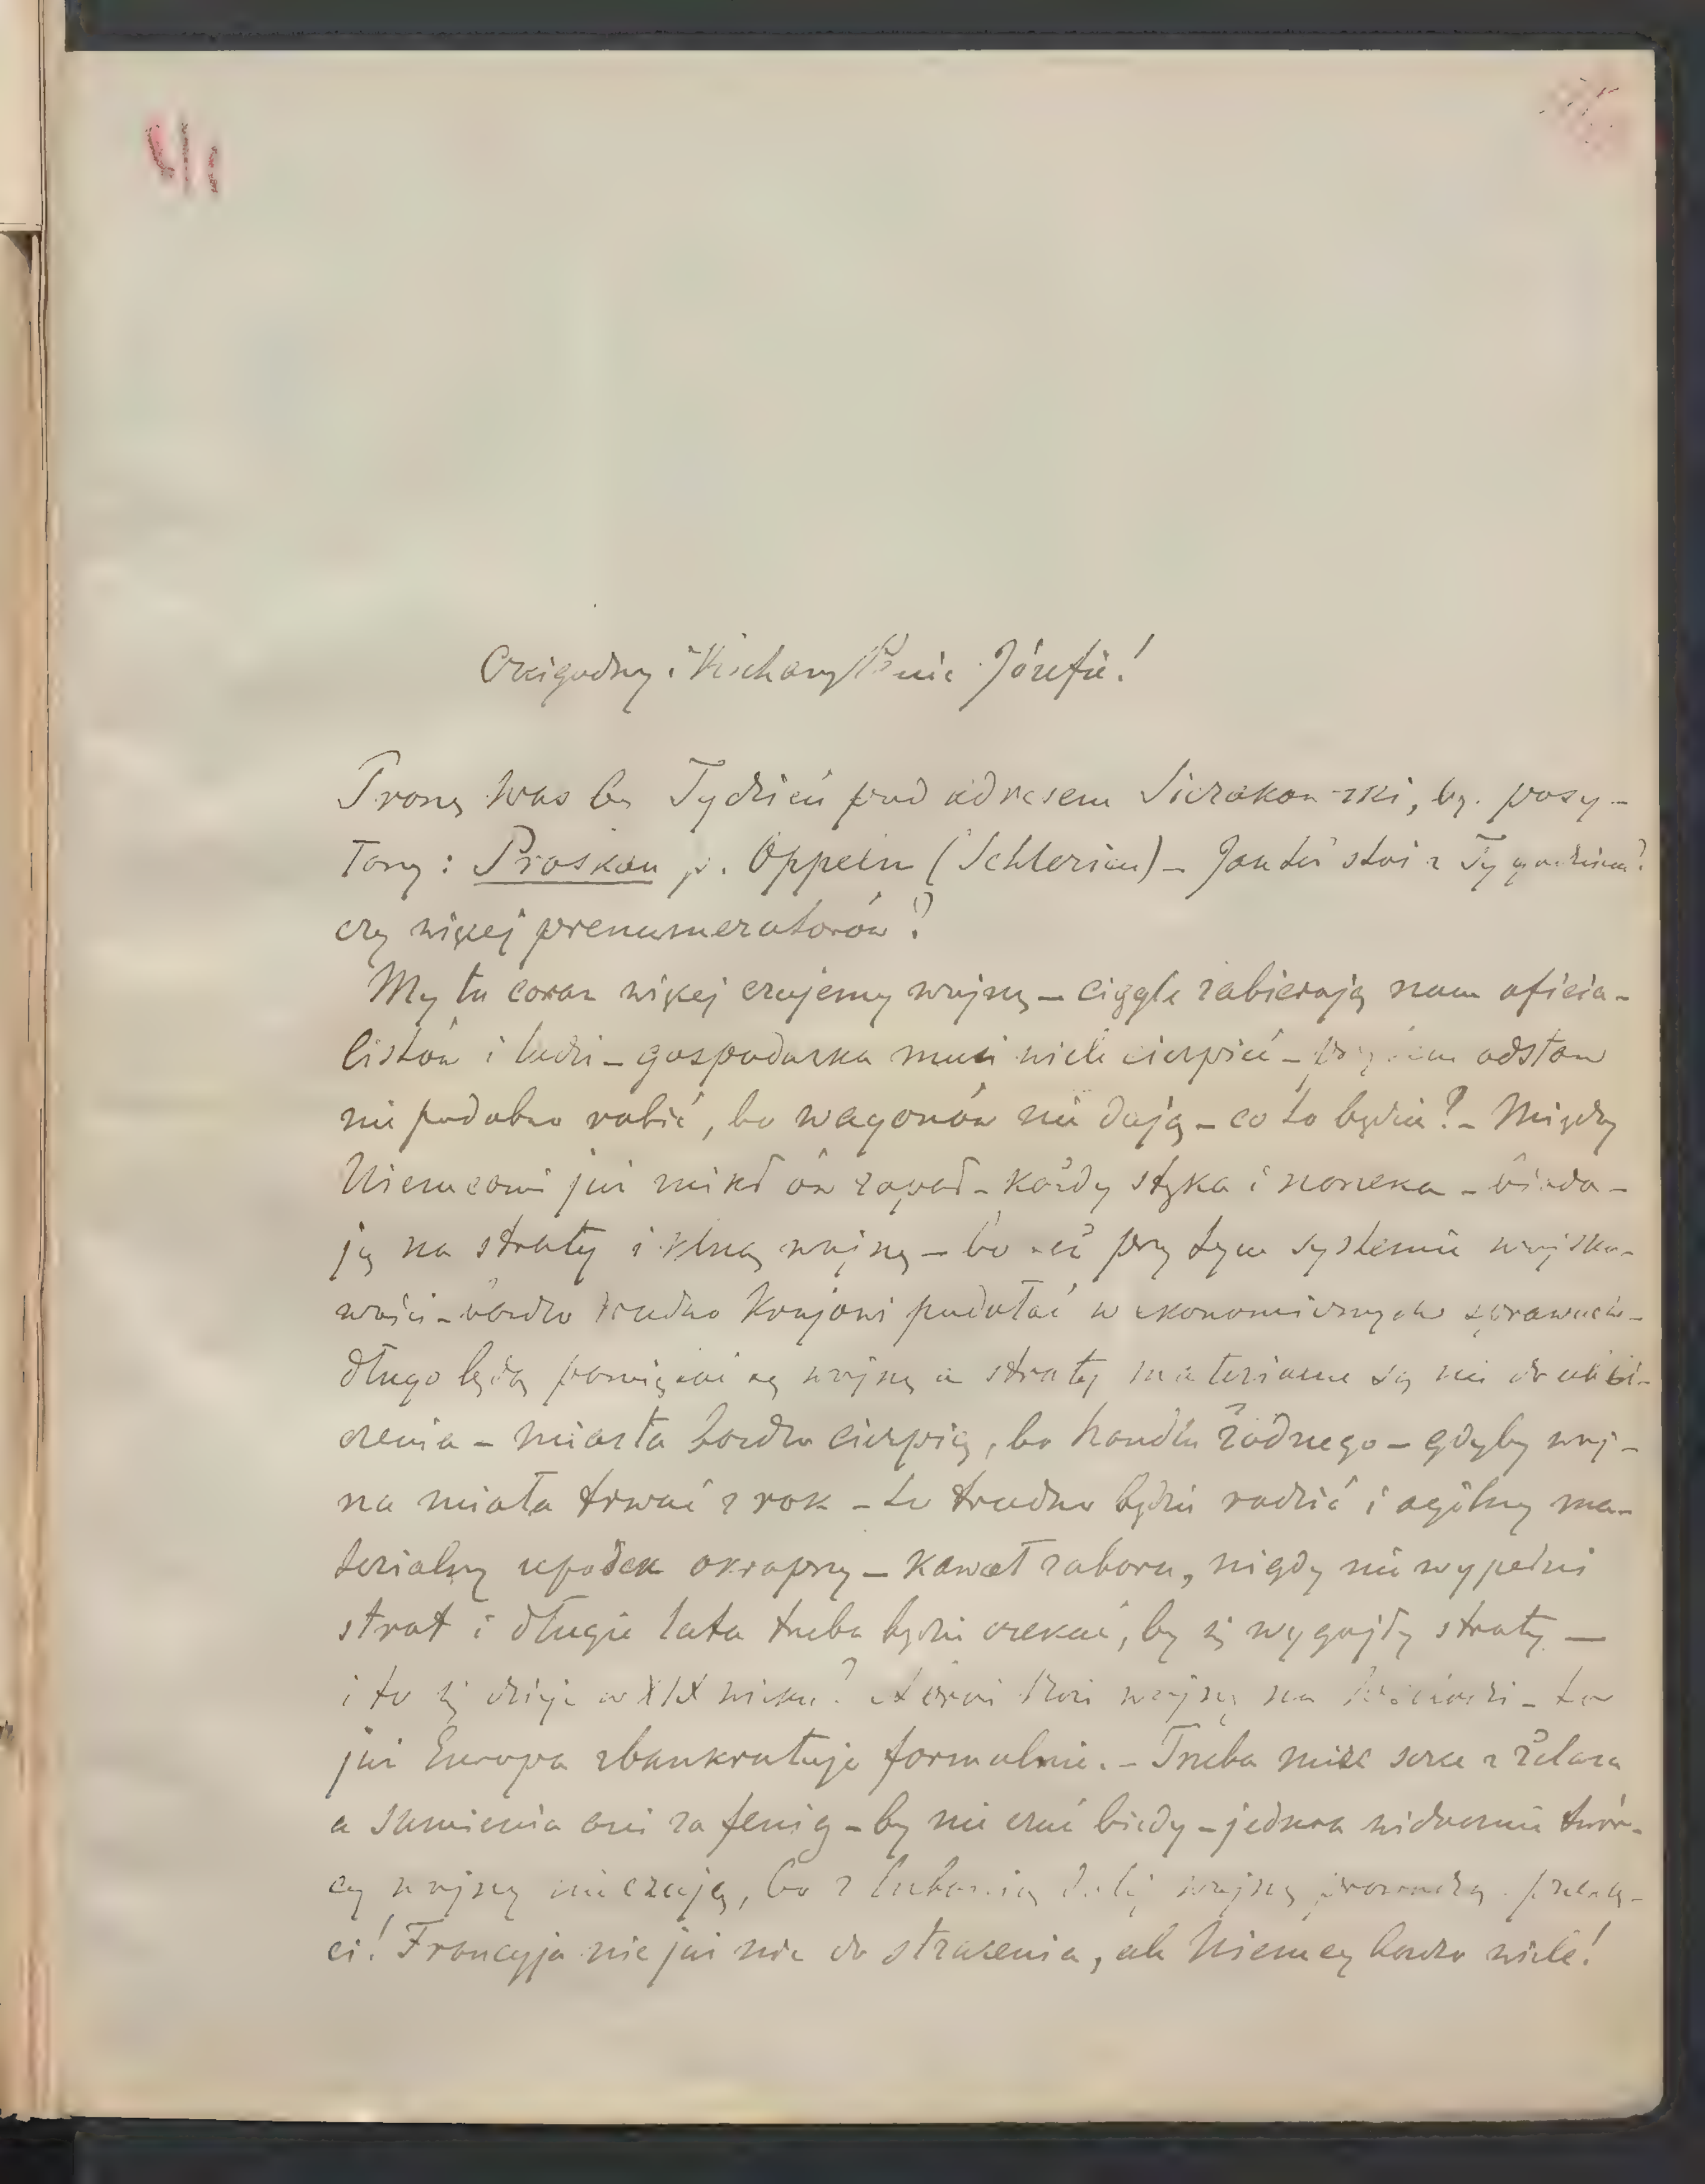 Czcigodny i Kochany Panie Józefie!
Proszę Was by Tydzień pod adresem Sierakowski, by. posy-
łany: Proskau p. Oppeln (Schlesien) - Jan też stoi z Tygodniem?
czy więcej prenumeratorów?
My tu coraz więcej czujemy wojnę - ciągle zabierają nam oficia-
listów i ludzi - gospodarka musi wiele cierpieć - odstaw
nie podobna robić, bo wagonów nie dają - co to będzie? - Między
Niemcami już znikł ów zapał - każdy styka i narzeka - biada-
ją na straty i klną wojnę - bo też przy tym systemie wojsko-
wości - bardzo trudno krajowi podołać w ekonomicznych sprawach -
długo będą pamiętać tę wojnę a straty materialne są nie do obli-
czenia - miasta bardzo cierpią, bo handlu żadnego - gdyby woj-
na miała trwać z rok - to trudno będzie radzić i ogólny ma-
terialny upadek okropny - kawał zaboru, nigdy nie wypełni
strat i długie lata trzeba będzie czekać, by się wygoiły straty —
i to się dzieje w XIX wieku? wojnę na - to
już Europa zbankrutuje formalnie. - Trzeba mieć serce z żelaza
a sumienia ani za fenig - by nie czuć biedy - jednak widocznie twór-
cy wojny nie czują, bo z lubością dalej wojnę prowadzą.
ci! Francyja nie już nie do stracenia, ale Niemcy bardzo wiele!